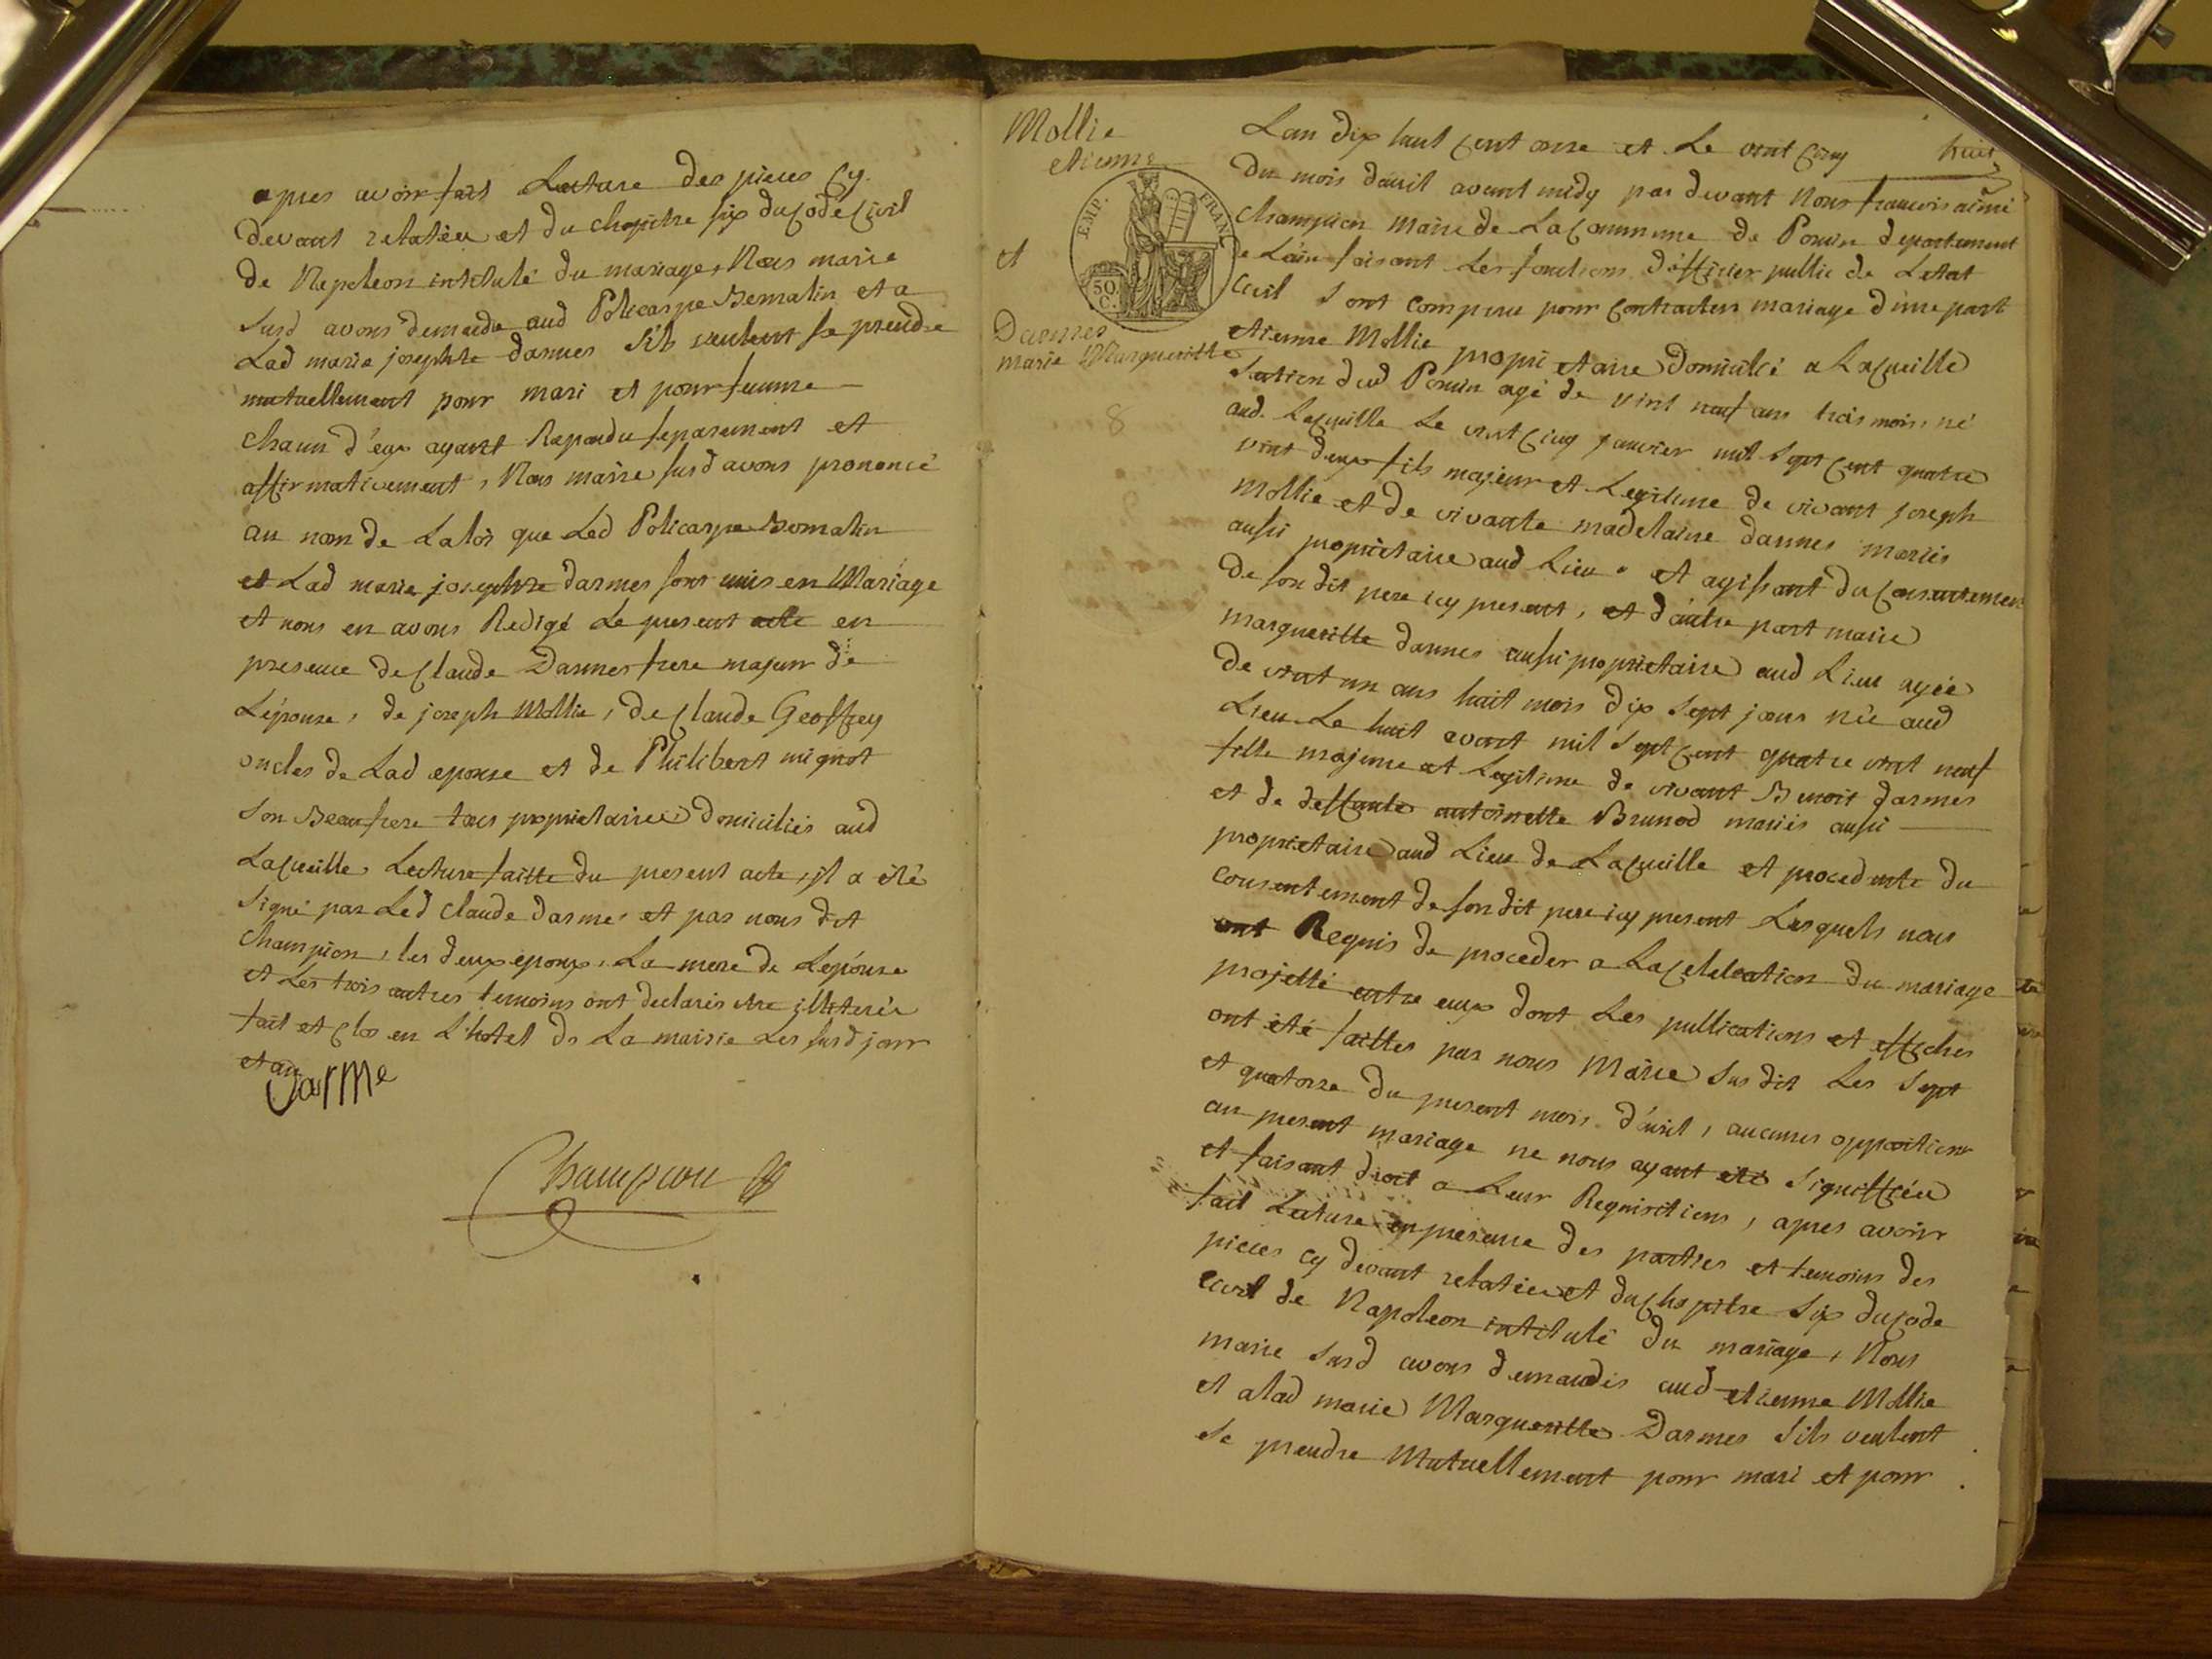 apres avoir fait Lecture des pieces cy
devant relatées et du chapitre six du code civil
de Napoleon intitulé du mariage, Nous maire
susd avons demandé aud Policarpe Bematin et a
Lad marie josephte darmes s'ils veulent se prendre
mutuellement pour mari et pour femme
chacun d'eux ayant Repondu separement et
affirmativement, Nous maire susd avons prononcé
au nom de La loi que Led Policarpe Bematin
et Lad marie josephte darmes sont unis en Mariage
et nous en avons Redigé Le present acte en
presence de Claude Darmes frere majeur de
L'épouse, de joseph Mollie, de Claude Geoffrey
oncles de Lad epouse et de Philibert mignot
son Beaufrere tous proprietaires domiciliés aud
Lacueille, Lecture faitte du present acte, il a été
signé par Led claude darmes et par nous dit
champion, les deux epoux, La mere de Lepouse
et Les trois autres temoins ont declarés etre illiterés
fait et clos en L'hotel de La mairie Les susd jour
et an
Darme
Champion
Mollie
etienne
et
Darmes
marie Margueritte
EMP. FRANÇ
50.
C.
8
huit
Lan dix huit cent onze et Le vint cinq
du mois davril avant midy par devant Nous francois aimé
champion Maire de La Commune de Poncin departement
de Lain faisant Les fonctions d'officier public de Letat
Civil sont comparu pour contracter mariage d'une part
etienne Mollie proprietaire domicilié a Lacueille
section dud Poncin agé de vint neuf ans trois mois, né
aud. Lacueille Le vint cinq janvier mil sept cent quatre
vint deux fils majeur et Legitime de vivant joseph
Mollie et de vivante madelaine darmes mariés
aussi proprietaire aud Lieu et agissant du consentement
de son dit pere icy present, et d'autre part marie
margueritte darmes aussi proprietaire aud Lieu agée
de vint un ans huit mois dix sept jours née aud
Lieu Le huit avout mil sept cent quatre vint neuf
fille majeure et Legitime de vivant Benoit darmes
et de deffunte antoinette Brunod mariés aussi
proprietaire aud Lieu de Lacueille et procedente du
consentement de son dit pere icy present Lesquels nous
ont Requis de proceder a La Celebration du mariage
projetté entre eux dont Les publications et affiches
ont été faittes par nous Maire susdit Les sept
et quatorze du present mois d'avril, aucunes oppositions
au present mariage ne nous ayant été signiffiées
et faisant droit a Leur Requisitions, apres avoir
fait Lecture en presence des parties et temoins des
pieces cy devant relatées et du chapitre six du code
civil de Napoleon intitulé du mariage, Nous
maire susd avons demandés aud etienne Mollie
et alad marie Marguerittes Darmes s'ils veulent
se prendre Mutuellement pour mari et pour